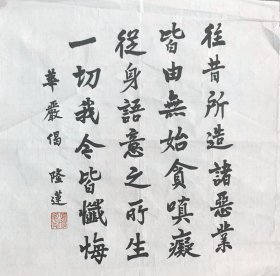 往昔所造諸惡業
皆由無始貪嗔癡
從身語意之所生
一切我今皆懺悔
華嚴偈 隆蓮